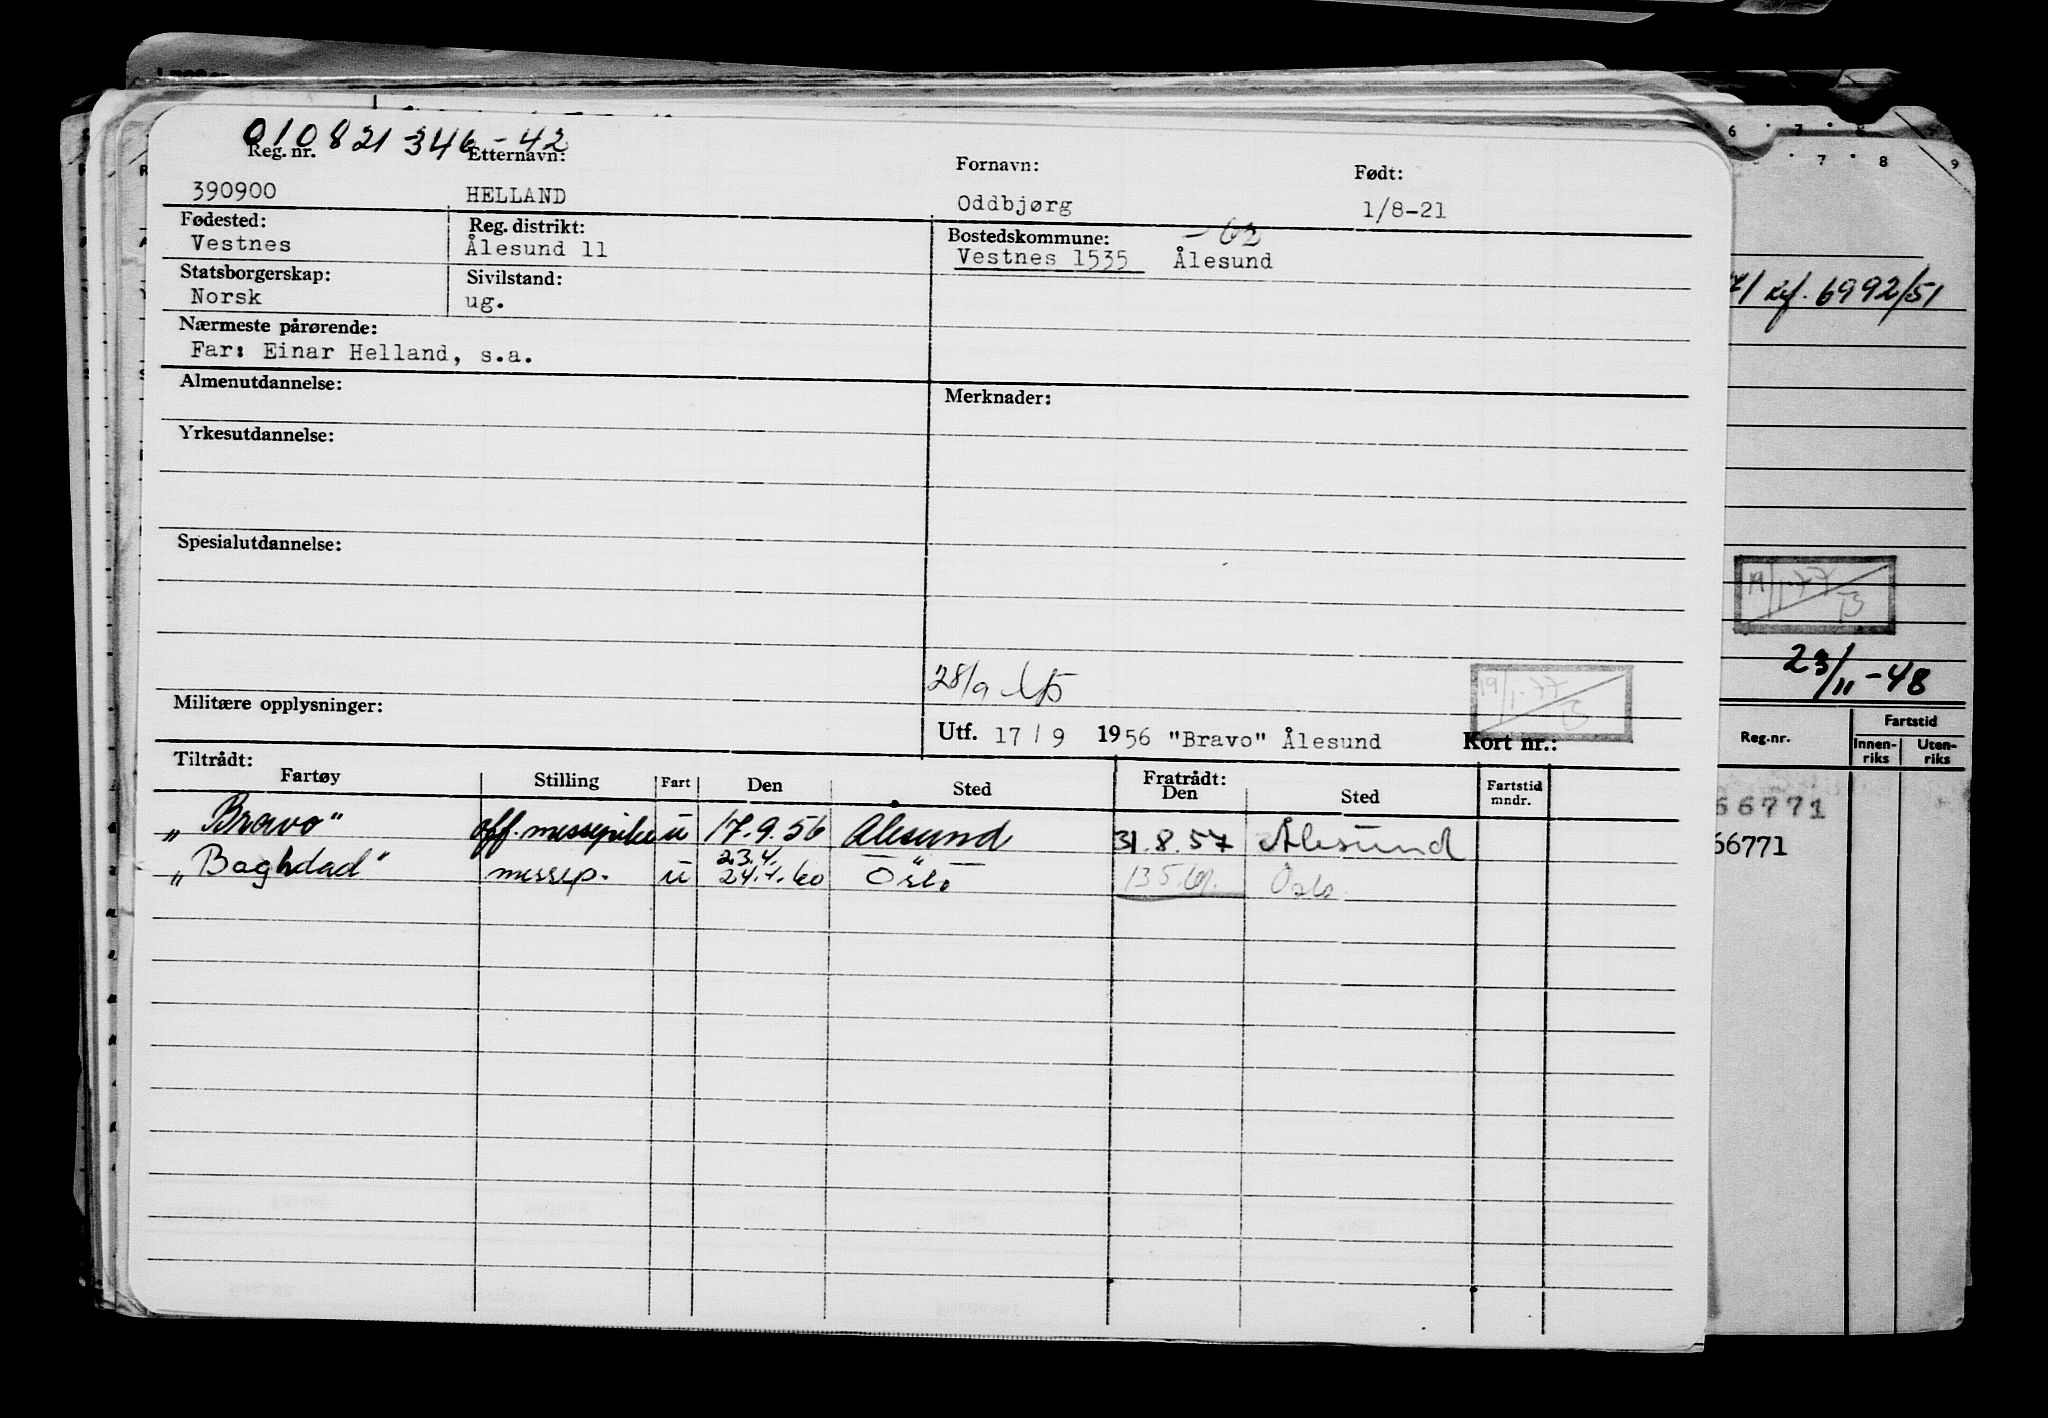 010821 346-42
Reg. nr. Etternavn: Fornavn: Født:
390900 HELLAND Oddbjørg 1/8-21
Fødested: Reg. distrikt: Bostedskommune: -62
Vestnes Ålesund 11 Vestnes 1535 Ålesund
Statsborgerskap: Sivilstand:
Norsk ug.
Nærmeste pårørende:
Far: Einar Helland, s.a.
Almenutdannelse: Merknader:
Yrkesutdannelse:
Spesialutdannelse:
28/9
19/1-77
Militære opplysninger:
Utf. 17/9 1956 "Bravo" Ålesund Kort nr.:
Tiltrådt: Fratrådt:
Fartøy Stilling Fart Den Sted Den Sted Fartstid mndr.
"Bravo" off. messepike u 17.9.56 Ålesund 31.8.57 Ålesund
23.4.
"Baghdad" messep. u 24.4.60 Oslo 13.5. Oslo
6 7 8
7 8 9
6992/51
19/1-77
23/11-48
Reg.nr. Fartstid
Innen-riks Uten-riks
66771
66771